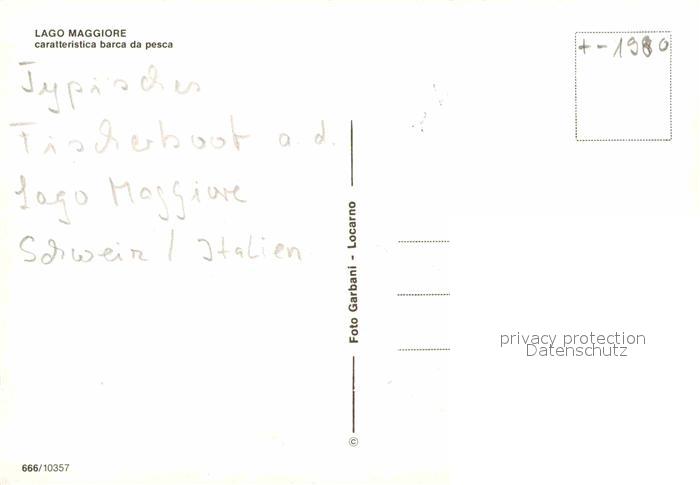 LAGO MAGGIORE
caratteristica barca da pesca
+-1980
Typisches
Fischerboot a.d.
Lago Maggiore
Schweiz / Italien
Foto Garbani - Locarno
©
privacy protection
Datenschutz
666/10357